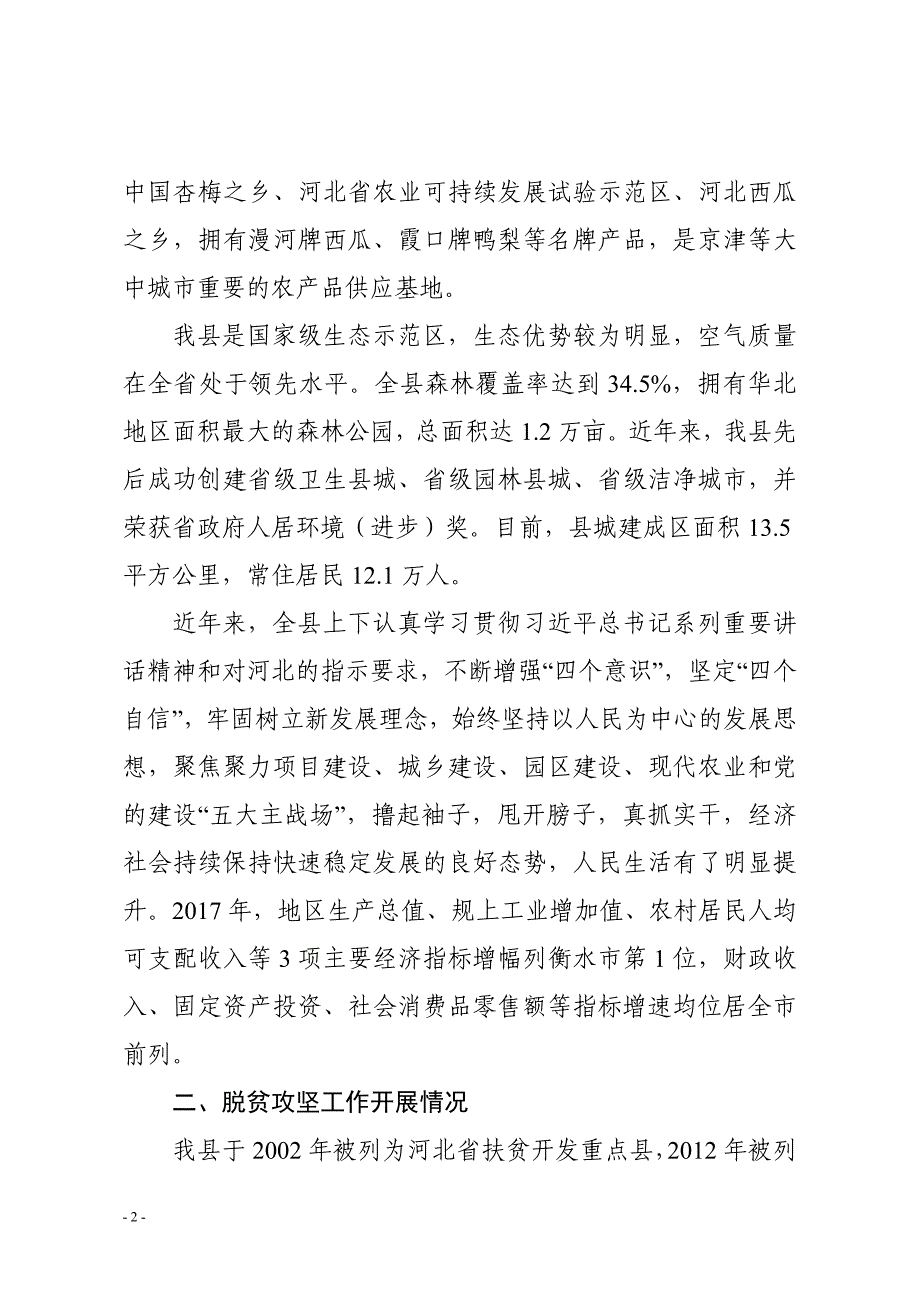 中国杏梅之乡、河北省农业可持续发展试验示范区、河北西瓜
之乡，拥有漫河牌西瓜、霞口牌鸭梨等名牌产品，是京津等大
中城市重要的农产品供应基地。
我县是国家级生态示范区，生态优势较为明显，空气质量
在全省处于领先水平。全县森林覆盖率达到 34.5%，拥有华北
地区面积最大的森林公园，总面积达 1.2 万亩。近年来，我县先
后成功创建省级卫生县城、省级园林县城、省级洁净城市，并
荣获省政府人居环境（进步）奖。目前，县城建成区面积 13.5
平方公里，常住居民 12.1 万人。
近年来，全县上下认真学习贯彻习近平总书记系列重要讲
话精神和对河北的指示要求，不断增强“四个意识”，坚定“四个
自信”，牢固树立新发展理念，始终坚持以人民为中心的发展思
想，聚焦聚力项目建设、城乡建设、园区建设、现代农业和党
的建设“五大主战场”，撸起袖子，甩开膀子，真抓实干，经济
社会持续保持快速稳定发展的良好态势，人民生活有了明显提
升。2017 年，地区生产总值、规上工业增加值、农村居民人均
可支配收入等 3 项主要经济指标增幅列衡水市第 1 位，财政收
入、固定资产投资、社会消费品零售额等指标增速均位居全市
前列。
二、脱贫攻坚工作开展情况
我县于 2002 年被列为河北省扶贫开发重点县，2012 年被列
- 2 -